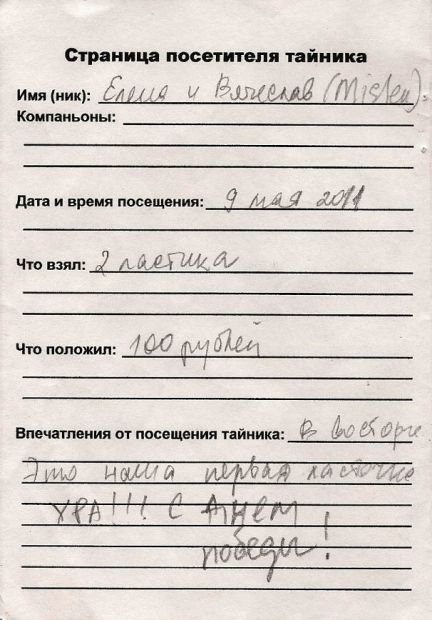 Страница посетителя тайника
Имя (ник): Елена и Вячеслав (Misten).
Компаньоны:
Дата и время посещения: 9 мая 2011
Что взял: 2 ластика
Что положил: 100 рублей
Впечатления от посещения тайника: В восторге
Это наша первая ласточка
УРА!!! С Днем
победы!